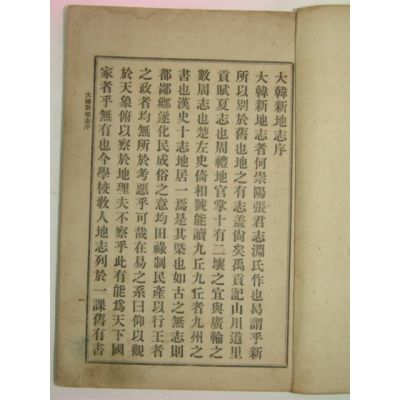 大韓新地志序
大韓新地志者何崇陽張君志淵氏作也曷謂乎新
所以別於舊也地之有志盖尙矣禹貢記山川道里
貢賦夏志也周禮地官掌十有二壤之宜與廣輪之
數周志也楚左史倚相號能讀九丘九丘者九州之
書也漢史十志地居一焉是其槩也如古之無志則
鄙鄙鄉遂化民成俗之意均田祿制民產以行王者
之政者均無所於考惡乎可哉在易之系曰仰以觀
於天象俯以察於地理夫不察乎此有能爲天下國
家者乎無有也今學校敎人地志列於一課舊有書
大韓新地志序